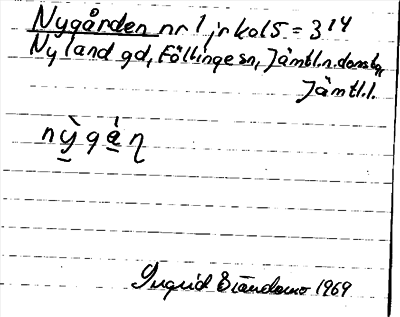 Nygården nr 1, jr kol 5 = 3¹⁴
Nyland gd, Föllinge sn, Jämtl. n. domsg,
Jämtl. l.
nỳgá̱ɳ
Ingrid
1969